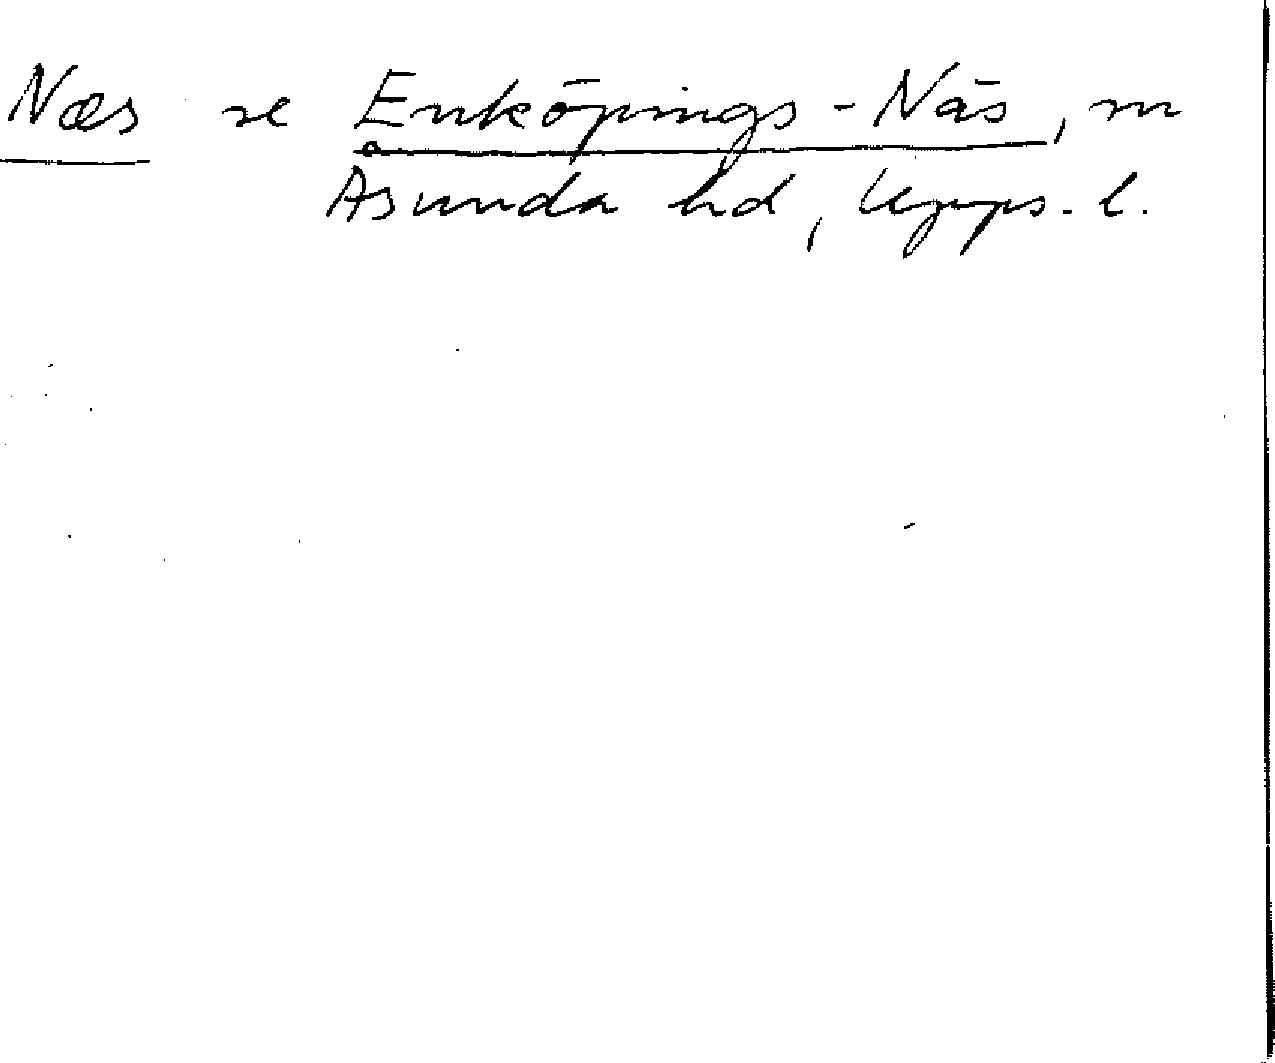 Næs se Enköpings-Näs, sn
Åsunda hd, Upps. l.